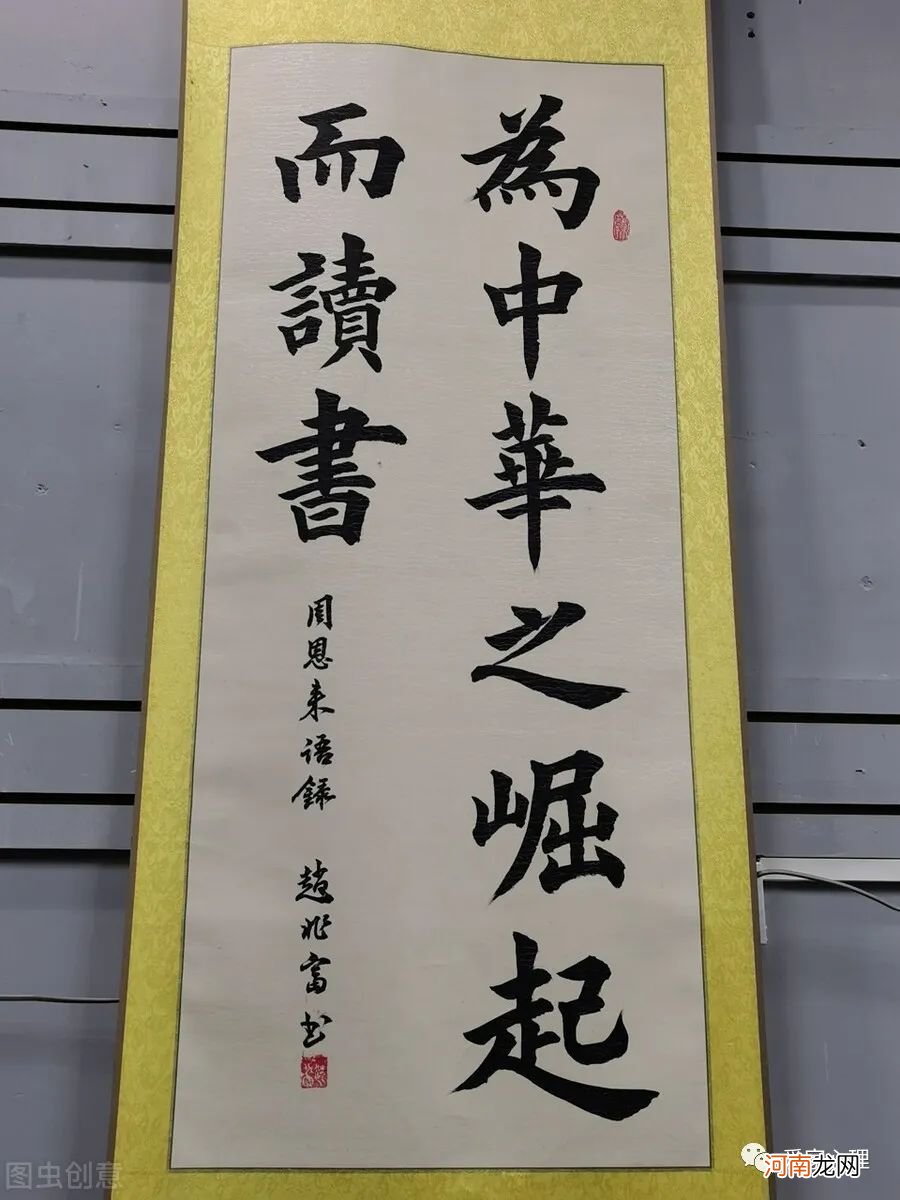 為中華之崛起
而讀書
周恩来语錄 趙兆富书
图虫创意
河南龙网